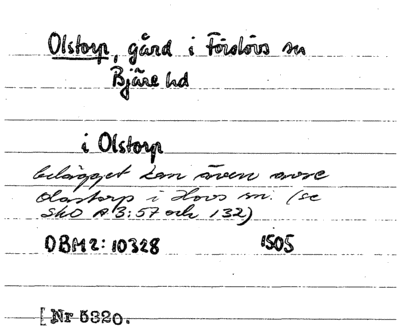 Olstorp, gård i Förslövs sn
Bjäre hd
i Olstorp
belägget kan även avse
Olastorp i Hovs sn. (se
SkO A 3:57 och 132)
DBM 2: 10328 1505
[Nr 5320.